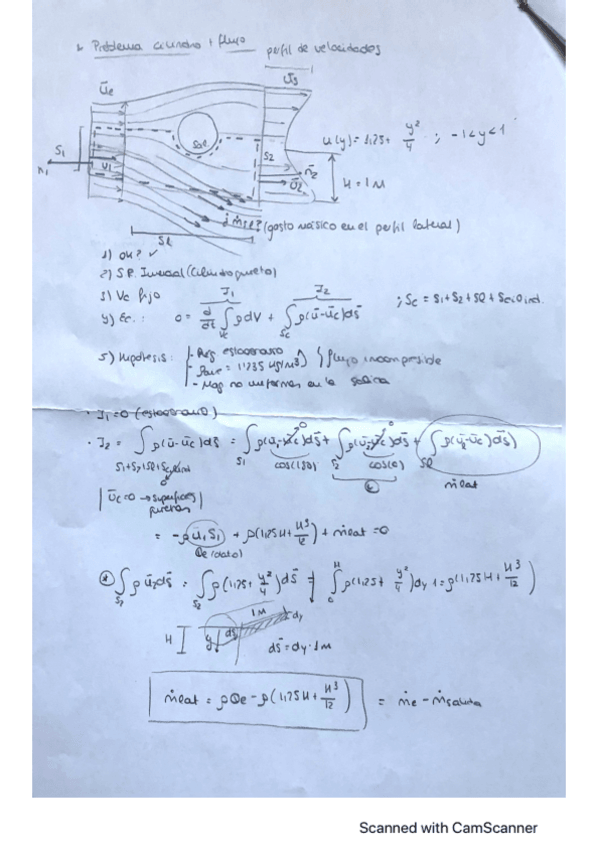 Problema cilindro + flujo
perfil de velocidades
Ūe
Ūs
S1
n1
U1
Scil
S2
n̄2
Ū2
u(y) = 1,25 + y²/4 ; -1<y<1
H = 1M
Sl
¿ṁsl? (gasto másico en el perfil lateral)
1) OK? ✓
2) S.R. Inercial (Cilindro quieto)
3) Vc fijo
I1 I2
4) Ec.: 0 = d/dt ∫Vc ρdV + ∫Sc ρ(ū-ūc)ds̄ ; Sc = S1 + S2 + Sl + Scilind.
5) Hipótesis: - Reg estacionario
- ρaire = 1'235 kg/m3 } flujo incompresible
- Mag no uniformes en la salida
· I1 = 0 (estacionario)
· I2 = ∫ρ(ū-ūc)ds̄ = ∫ρ(ū1-ūc)ds̄ + ∫ρ(ū2-ūc)ds̄ + ∫ρ(ūl-ūc)ds̄
S1+S2+Sl+Scilind S1 cos(180) S2 cos(0) Sl
ṁlat
| ūc=0 → superficies quietas |
= -ρū1S1 + ρ(1,25H + H³/12) + ṁlat = 0
Qe (dato)
∫S2 ρū2ds̄ = ∫S2 ρ(1,25 + y²/4)ds̄ = ∫0H ρ(1,25 + y²/4)dy·1 = ρ(1,25H + H³/12)
1M
dy
H
y
ds
ds̄ = dy·1M
ṁlat = ρQe - ρ(1,25H + H³/12) = ṁe - ṁsalida
Scanned with CamScanner